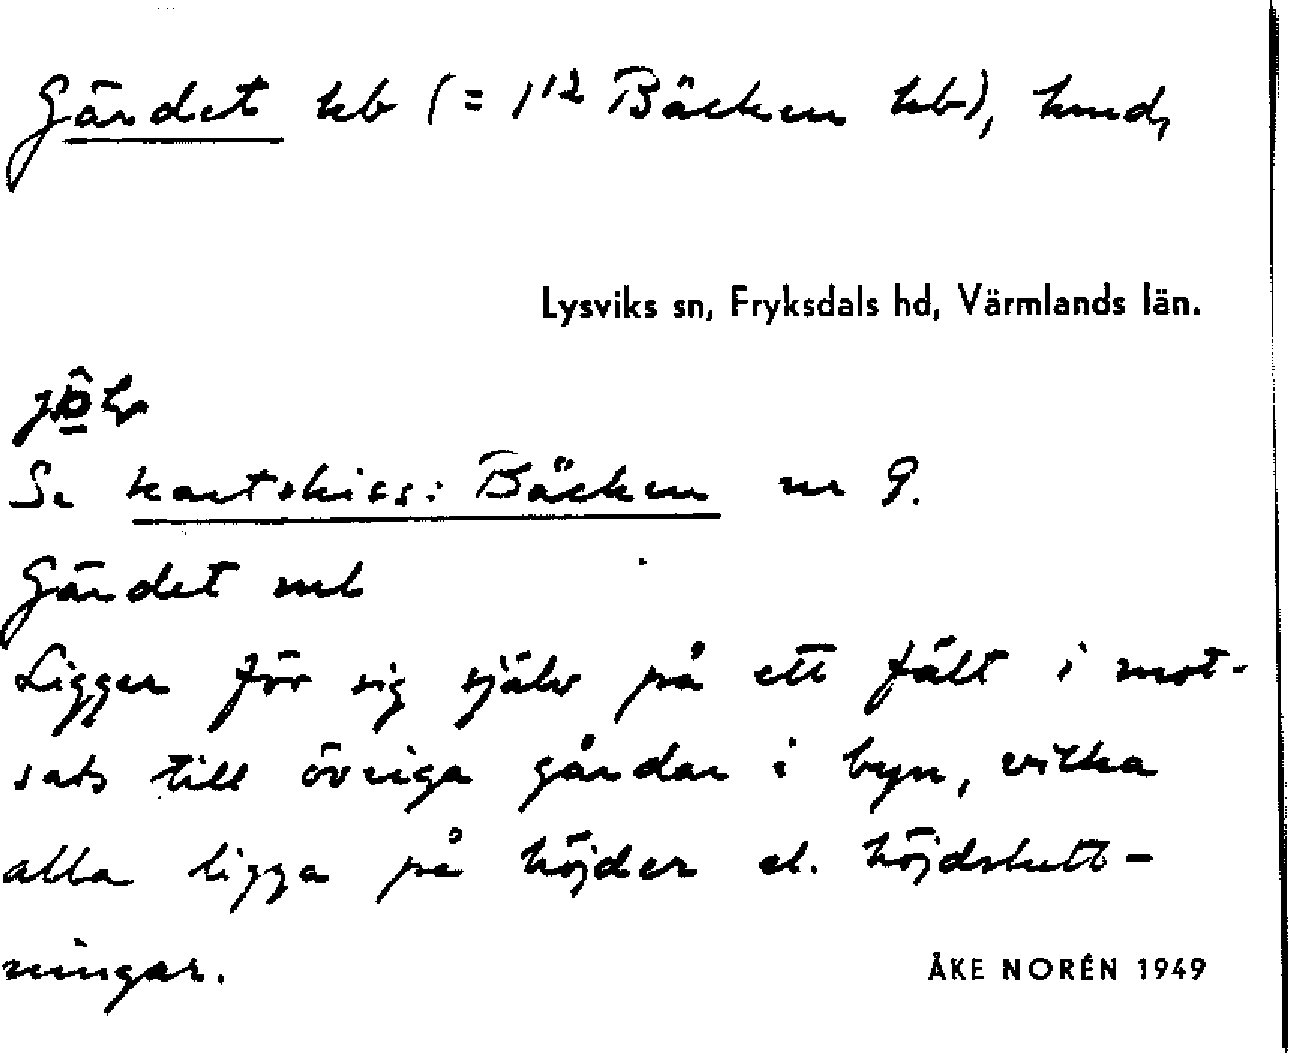 Gärdet hb (= 1¹² Bäcken hb), hmd,
Lysviks sn, Fryksdals hd, Värmlands län.
Se kartskiss: Bäcken nr 9.
Gärdet mb
Ligger för sig själv på ett fält i mot-
sats till övriga gårdar i byn, vilka
alla ligga på höjder el. höjdslutt-
ningar.
ÅKE NORÉN 1949